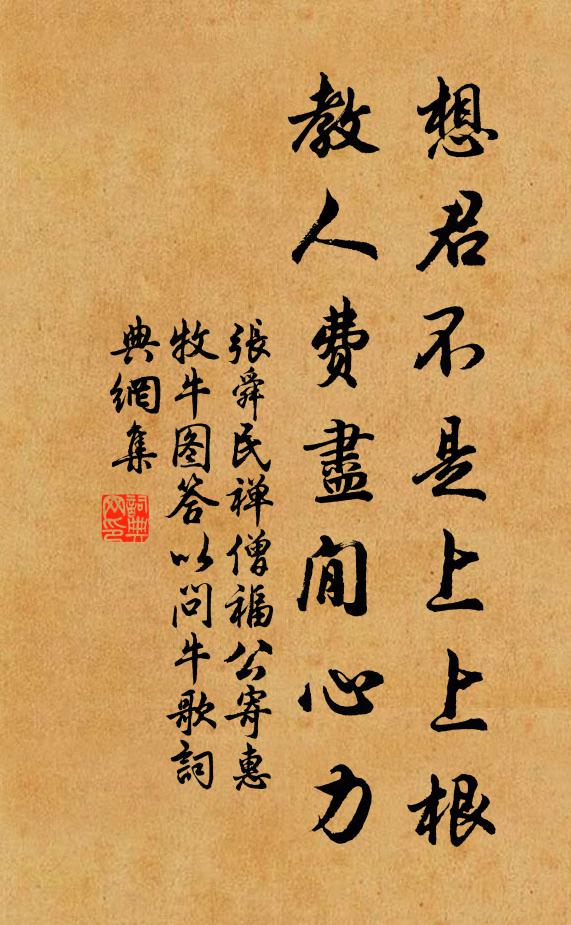 想君不是上上根
教人費盡閒心力
張舜民禅僧福公寄惠
牧牛图答以问牛歌詞
典網集
詞典網印